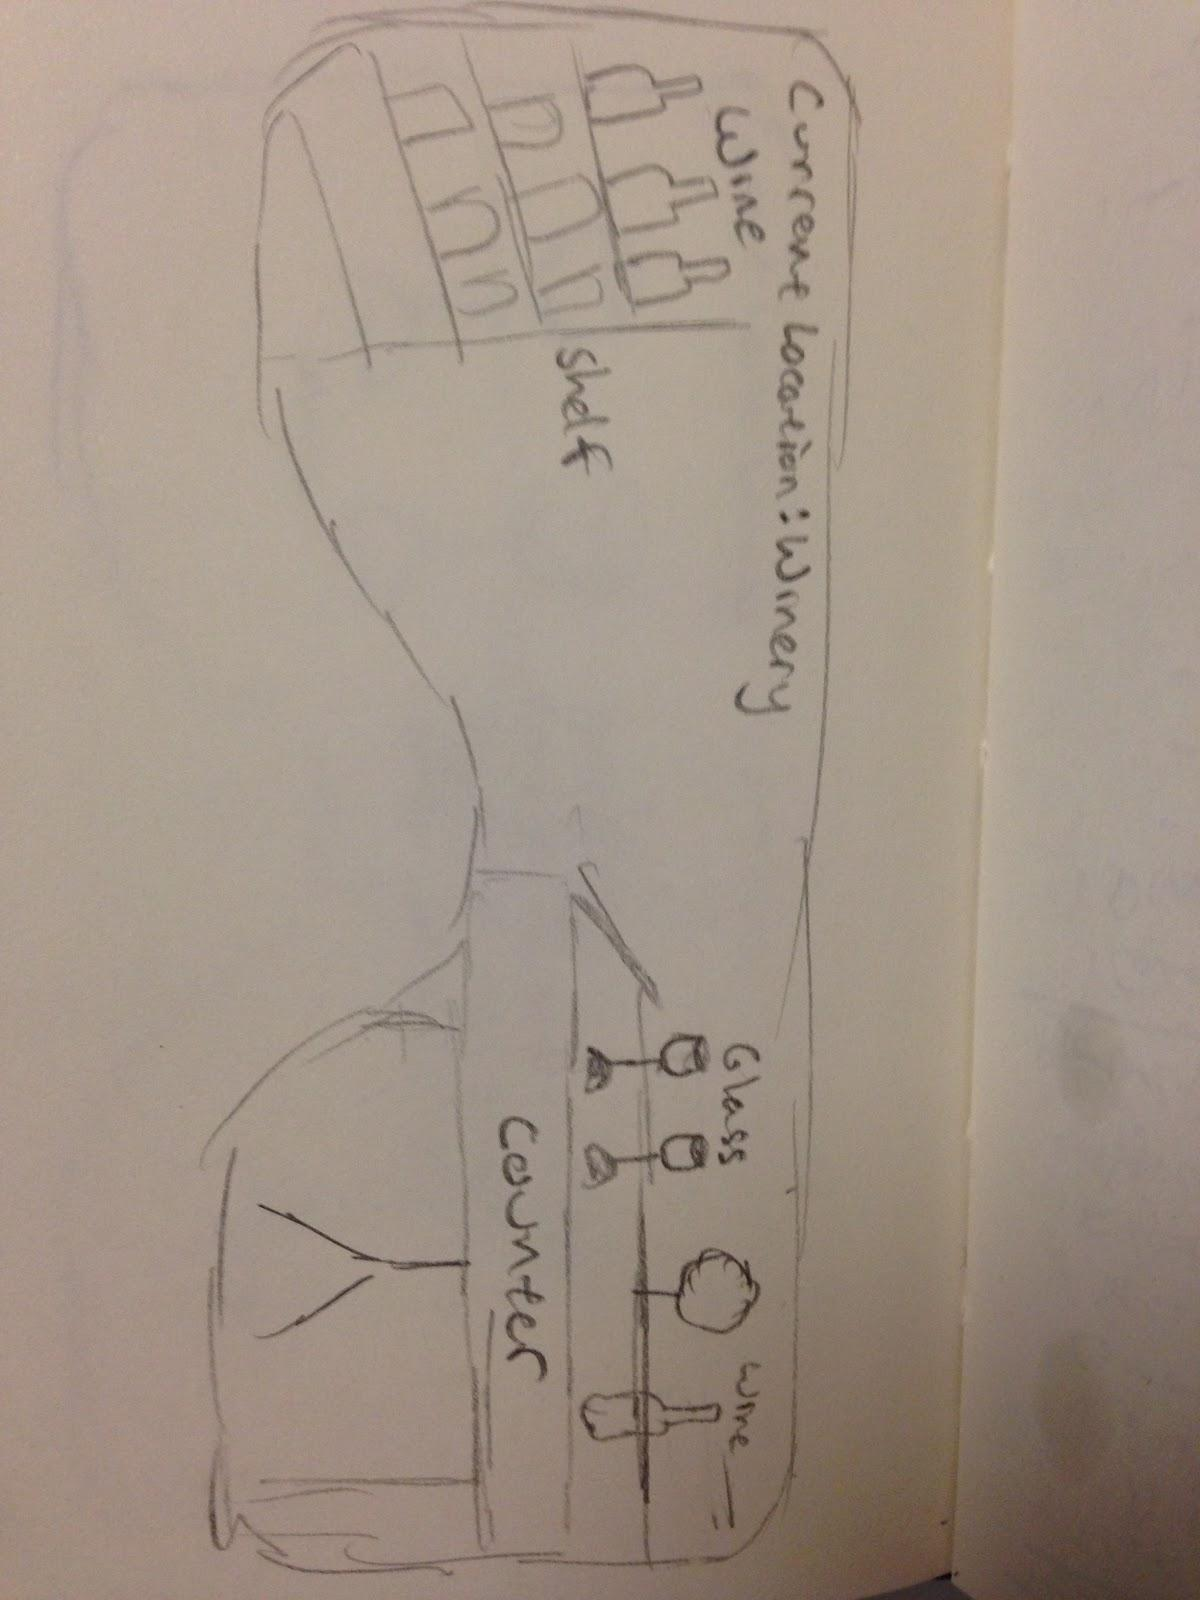 Current Location: Winery
Wine
Shelf
Glass
Wine
Counter